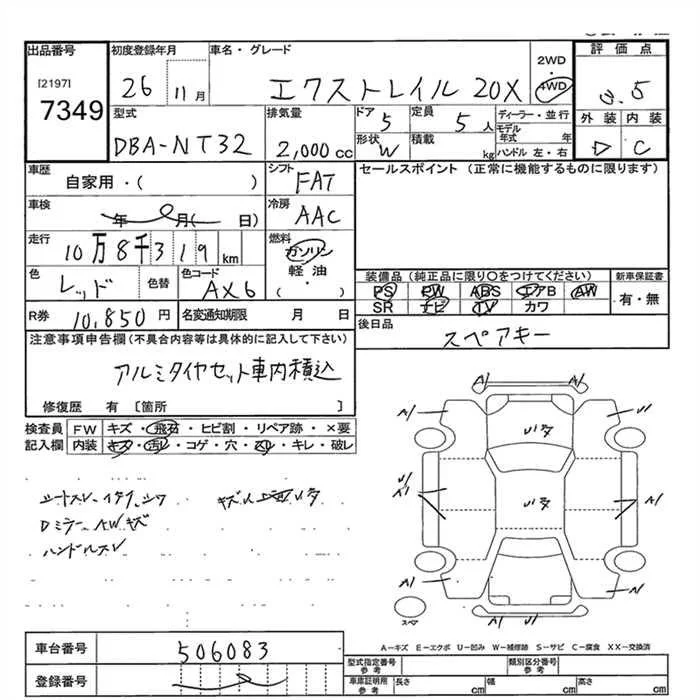 出品番号
[2197]
7349
初度登録年月
26 11月
車名・グレード
エクストレイル 20X
2WD
4WD
評価点
3.5
外装 内装
D C
型式
DBA-NT32
排気量
2,000cc
ドア 5
定員 5人
形状 W
積載 kg
ディーラー・並行
モデル年式 年
ハンドル 左・右
車歴
自家用・( )
シフト
FAT
セールスポイント (正常に機能するものに限ります)
車検
年 月( 日)
冷房
AAC
走行
10万8千319km
燃料
ガソリン
軽油
・( )
色
レッド
色替
色コード
AX6
装備品(純正品に限り○をつけてください)
PS PW ABS エアB AW
SR ナビ TV カワ
新車保証書
有・無
R券 10,850円
名変通知期限 月 日
後日品
スペアキー
注意事項申告欄(不具合内容等は具体的に記入して下さい)
アルミタイヤセット車内積込
修復歴 有 [箇所 ]
検査員記入欄
FW キズ・飛石・ヒビ割・リペア跡・×要
内装 キズ・汚レ・コゲ・穴・スレ・キレ・破レ
シートスレ・イタク、シワ
Dミラー、AWキズ
ハンドルスレ
A1 A1
A1 U1
Uイタ
U1
A1 A1
Uイタ
A1
A1 U1
スペア
A-キズ E-エクボ U-凹み W-補修跡 S-サビ C-腐食 XX-交換済
車台番号
506083
登録番号
型式指定番号 参考
類別区分番号 参考
車庫証明用 参考
長さ cm 幅 cm 高さ cm